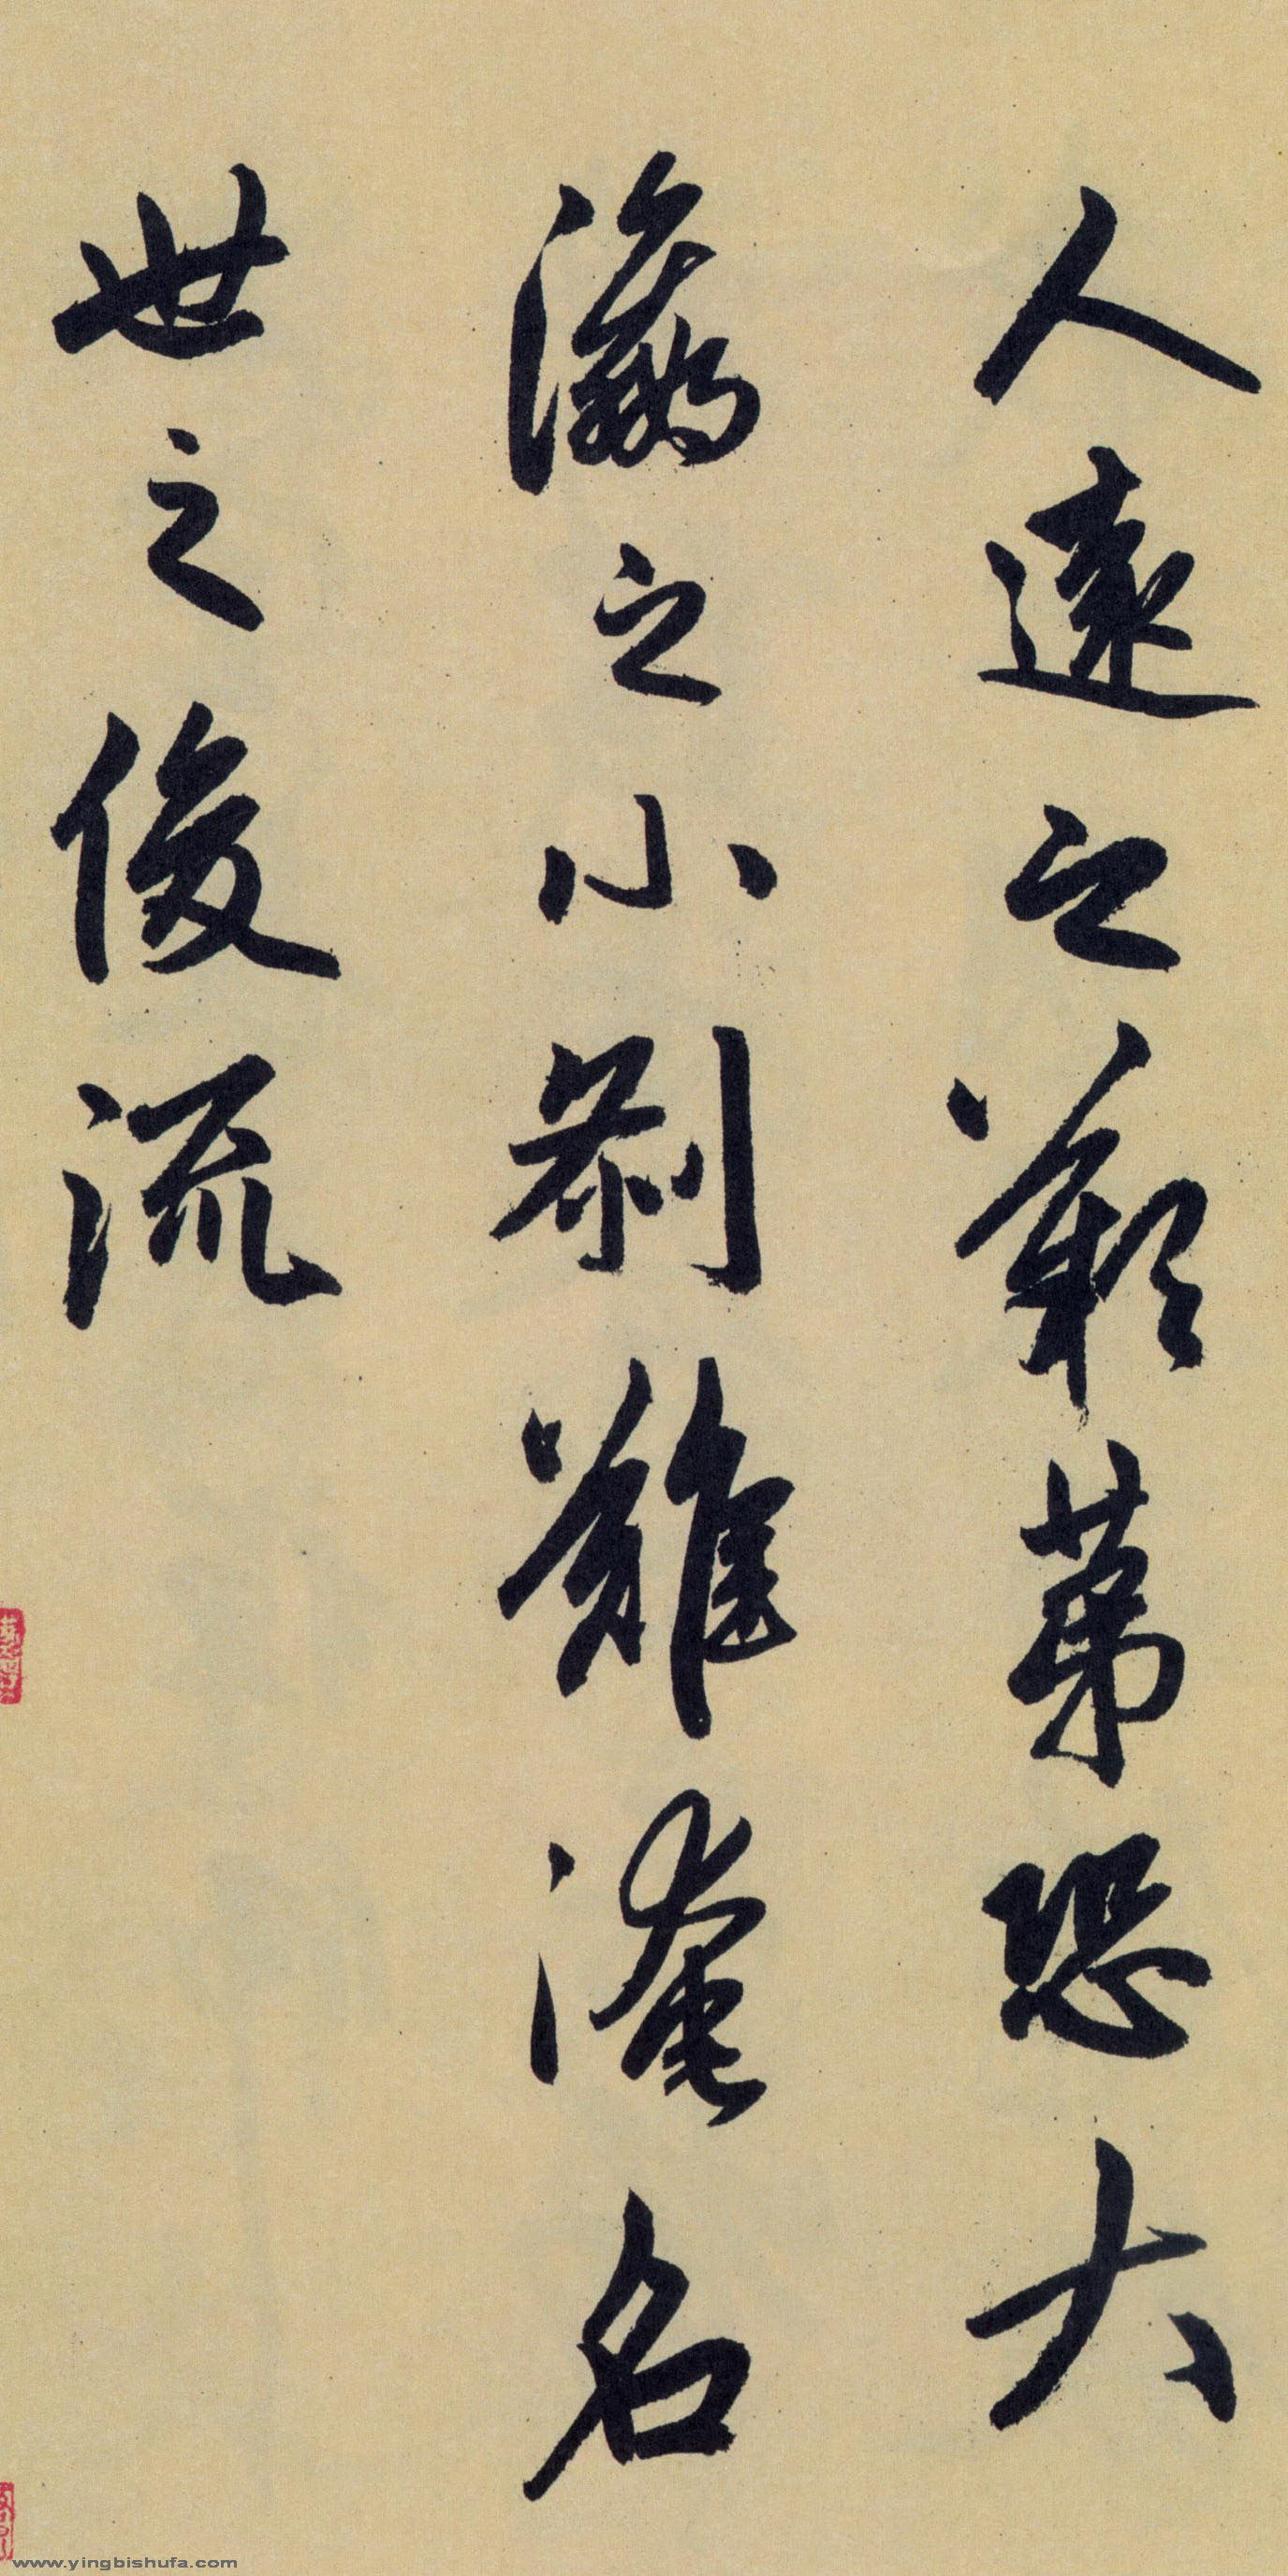 人遠之歎第恐大
瀛之小刹難淹名
世之俊流
www.yingbishufa.com